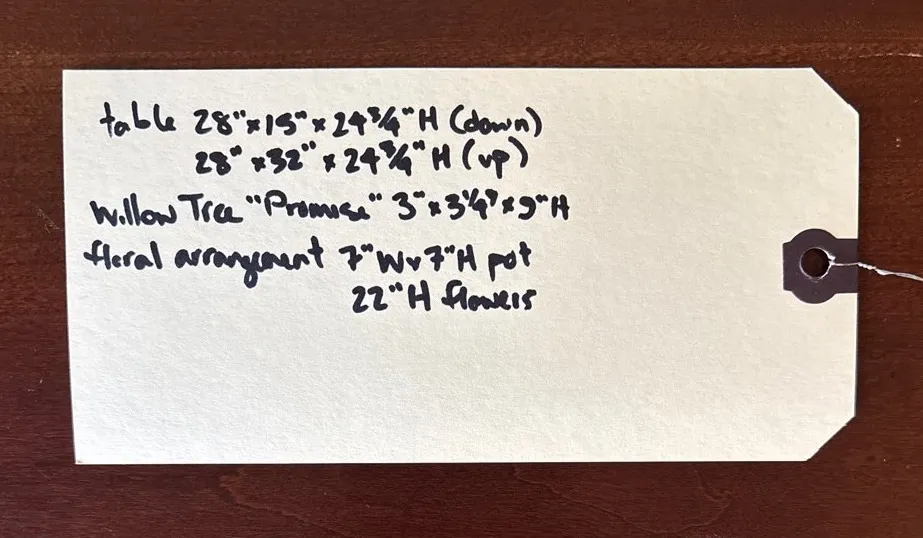 table 28"x15"x24¾"H (down)
28"x32"x24¾"H (up)
Willow Tree "Promise" 3"x3¼"x9"H
floral arrangement 7"Wx7"H pot
22"H flowers